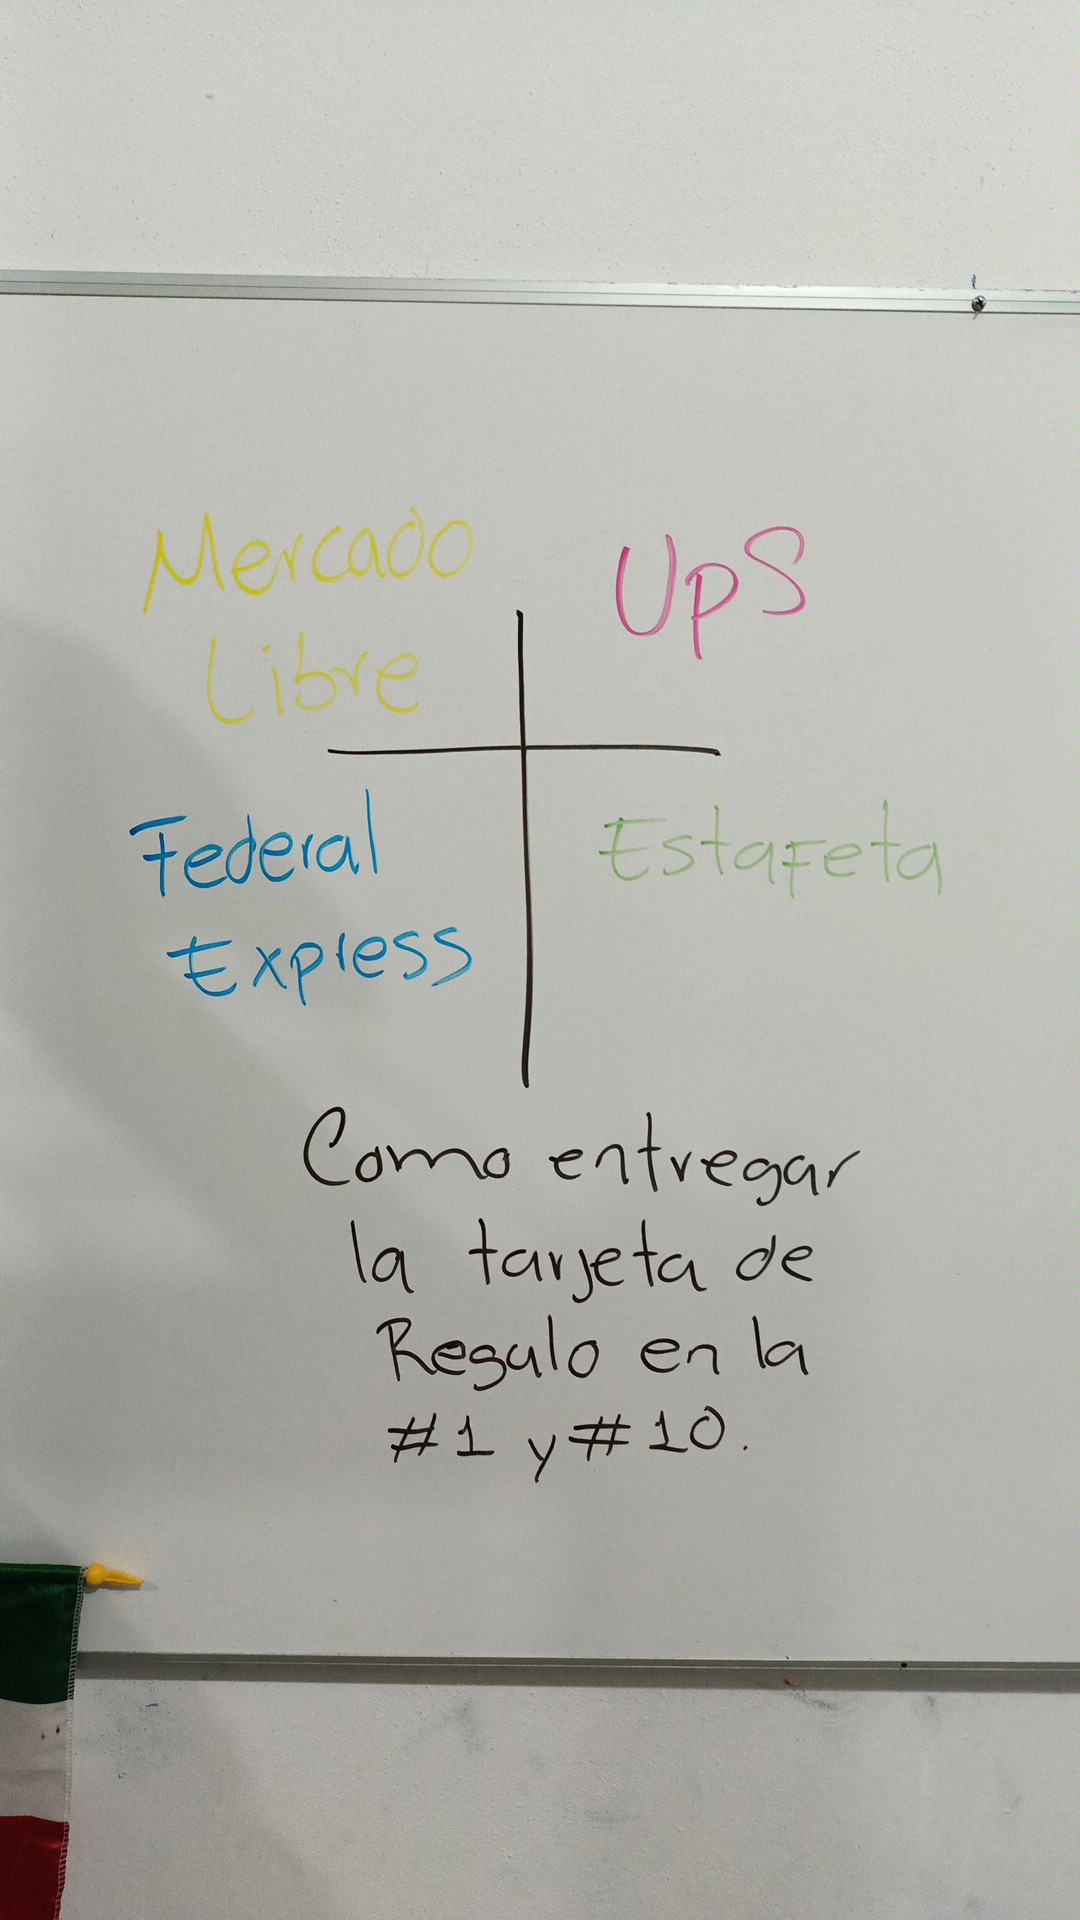 Mercado
Libre
UpS
Federal
Express
Estafeta
Como entregar
la tarjeta de
Regalo en la
#1 y #10.